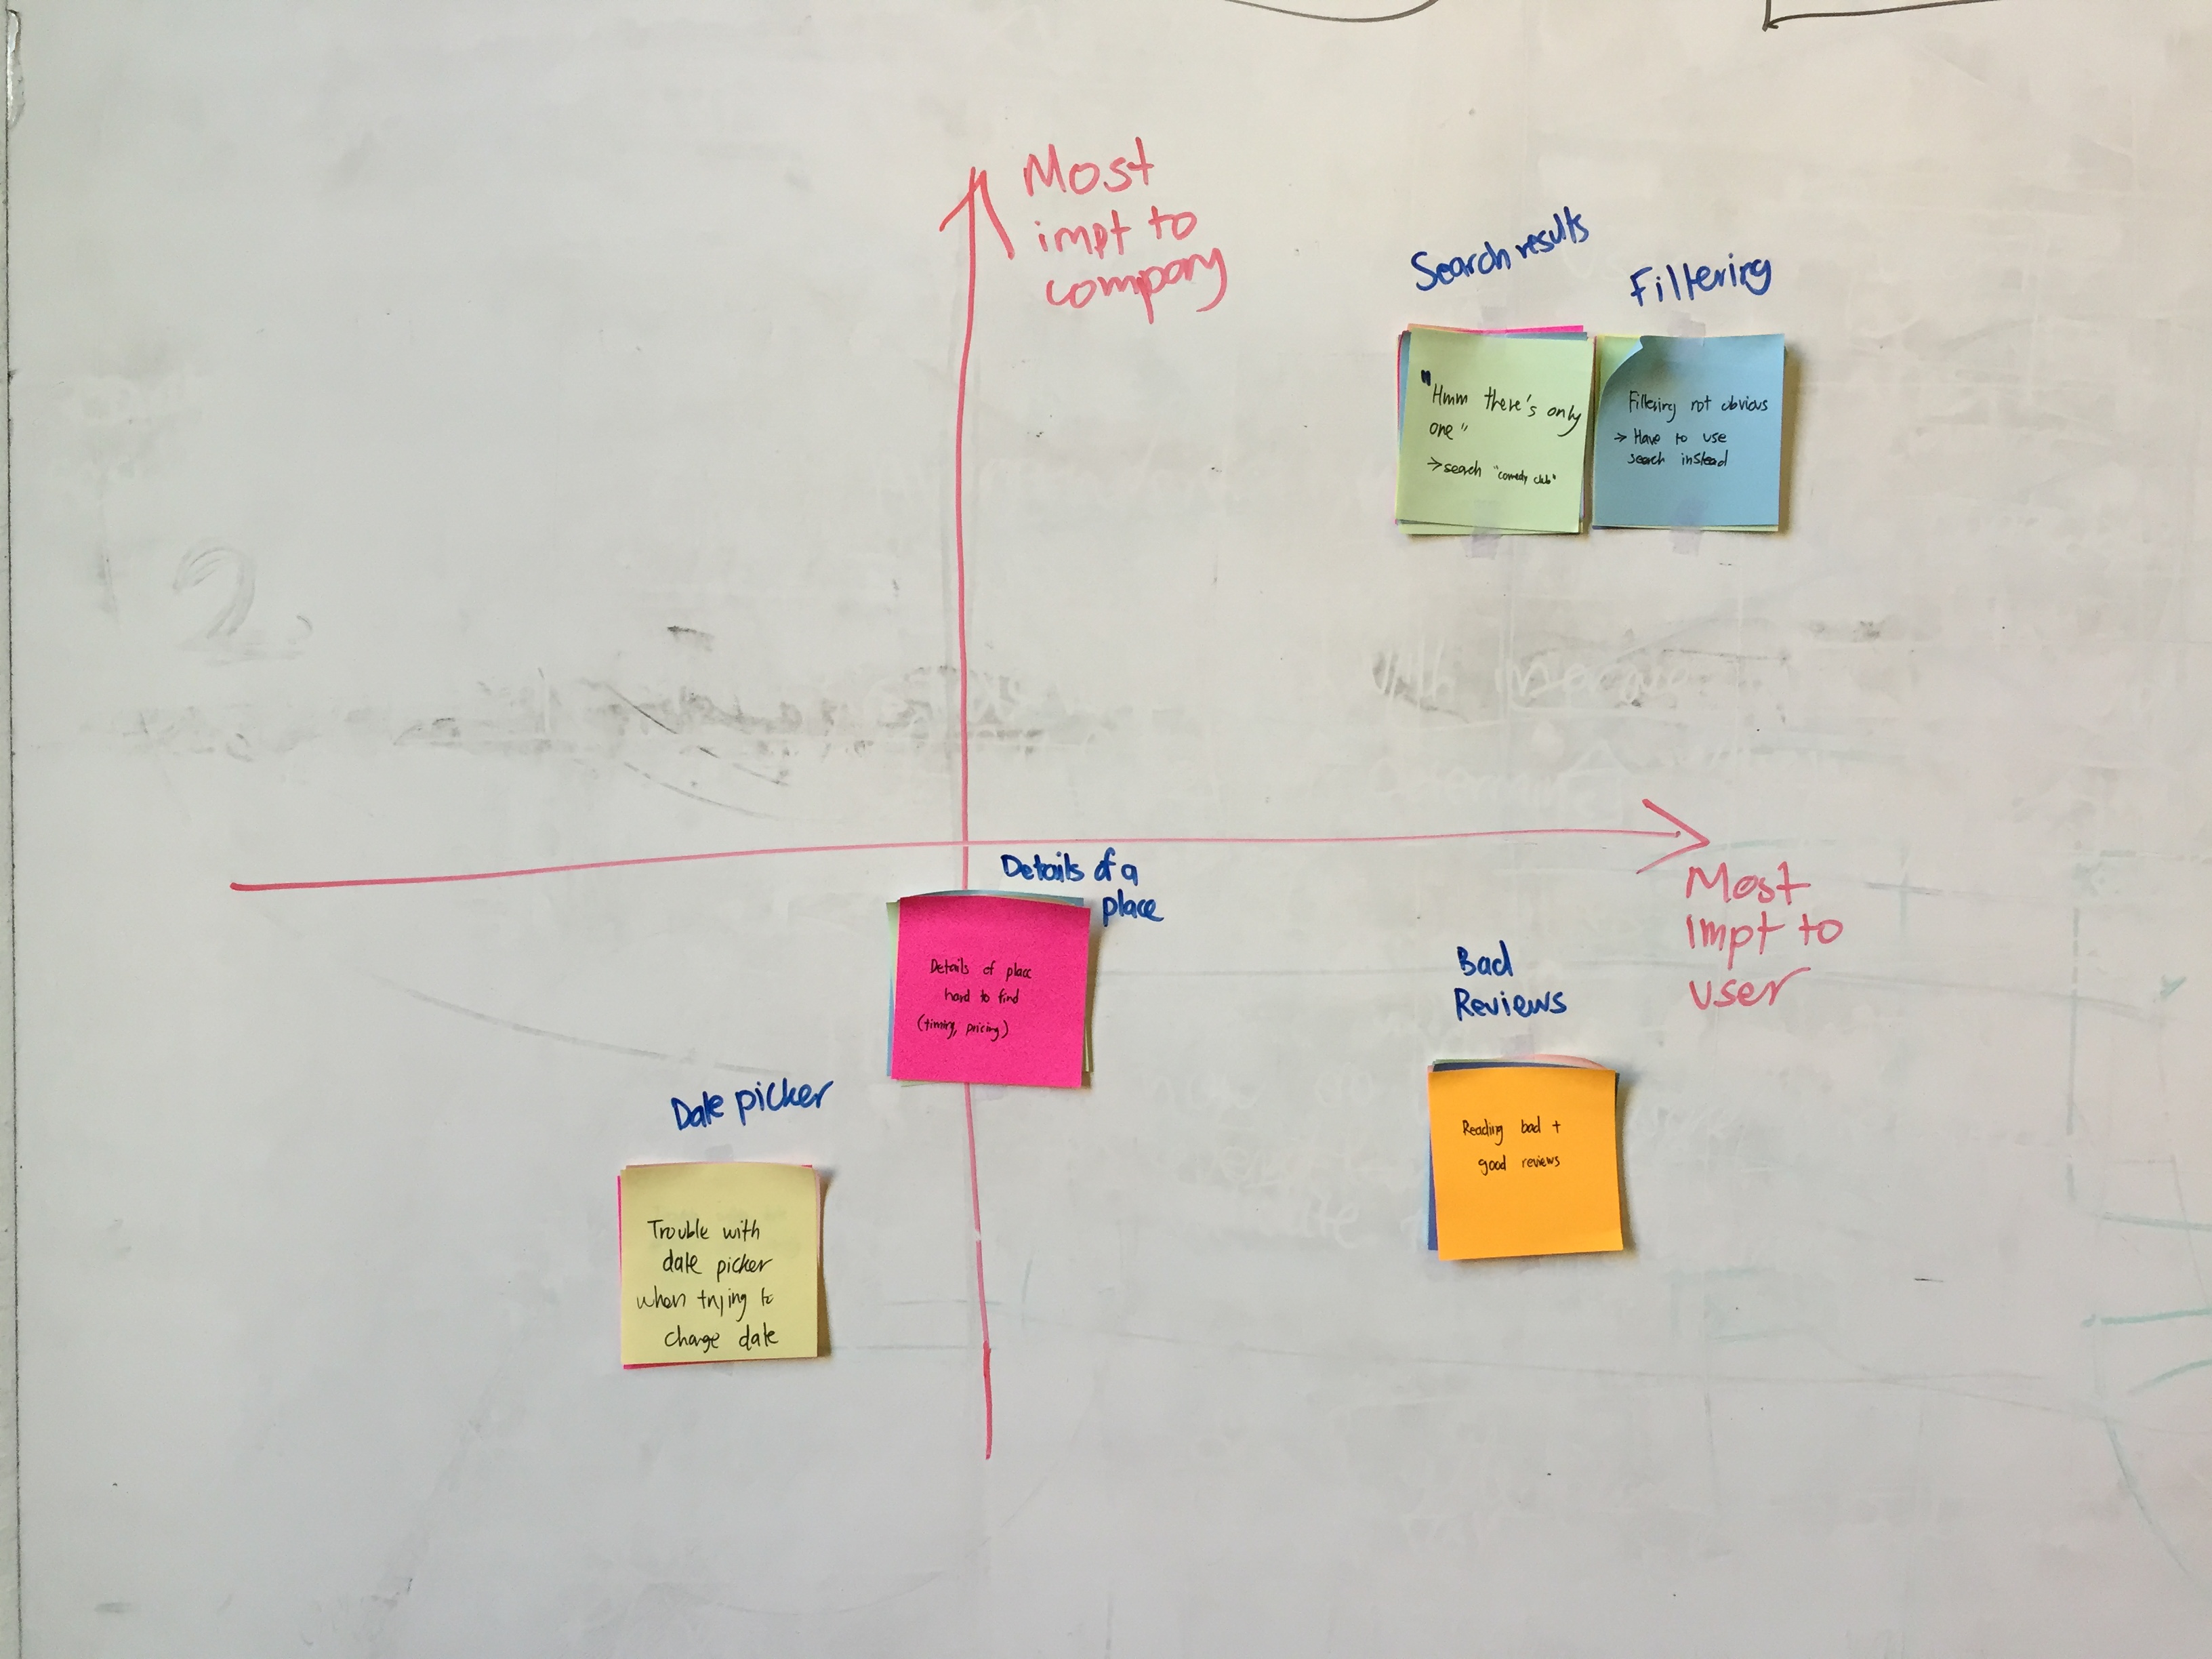 Most
impt to
company
Search results
Filtering
"Hmm there's only
one"
→ search "comedy club"
Filtering not obvious
→ Have to use
search instead
2.
Most
impt to
user
Details of a
place
Details of place
hard to find
(timing, pricing)
Bad
Reviews
Reading bad +
good reviews
Date picker
Trouble with
date picker
when trying to
change date